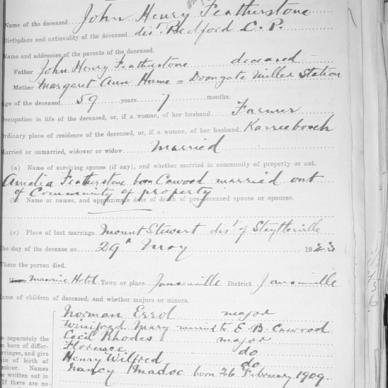 Name of the deceased John Henry Featherstone
Birthplace and nationality of the deceased dist. Bedford C.P.
Names and addresses of the parents of the deceased.
Father John Henry Featherstone deceased
Mother Margaret Ann Miller Station
Age of the deceased 59 years 7 months.
Occupation in life of the deceased, or, if a woman, of her husband. Farmer
Ordinary place of residence of the deceased, or, if a woman, of her husband. Karreebosch
Married or unmarried, widower or widow. Married
(a) Name of surviving spouse (if any), and whether married in community of property or not.
Amelia Featherstone born Cawood married out
of Community of property
(b) Name or names, and approximate date of death of pre-deceased spouse or spouses.
(c) Place of last marriage. Mount Stewart dist of Steytlerville
The day of the decease on 29th May 1923
Where the person died.
Hotel Town or place Jansenville District Jansenville
Names of children of deceased, and whether majors or minors.
Norman Errol major
Winifred Mary married to E. B. Cawood
Cecil Rhodes major
Florence do
Henry Wilfred do
Nancy born 26 February 1909.